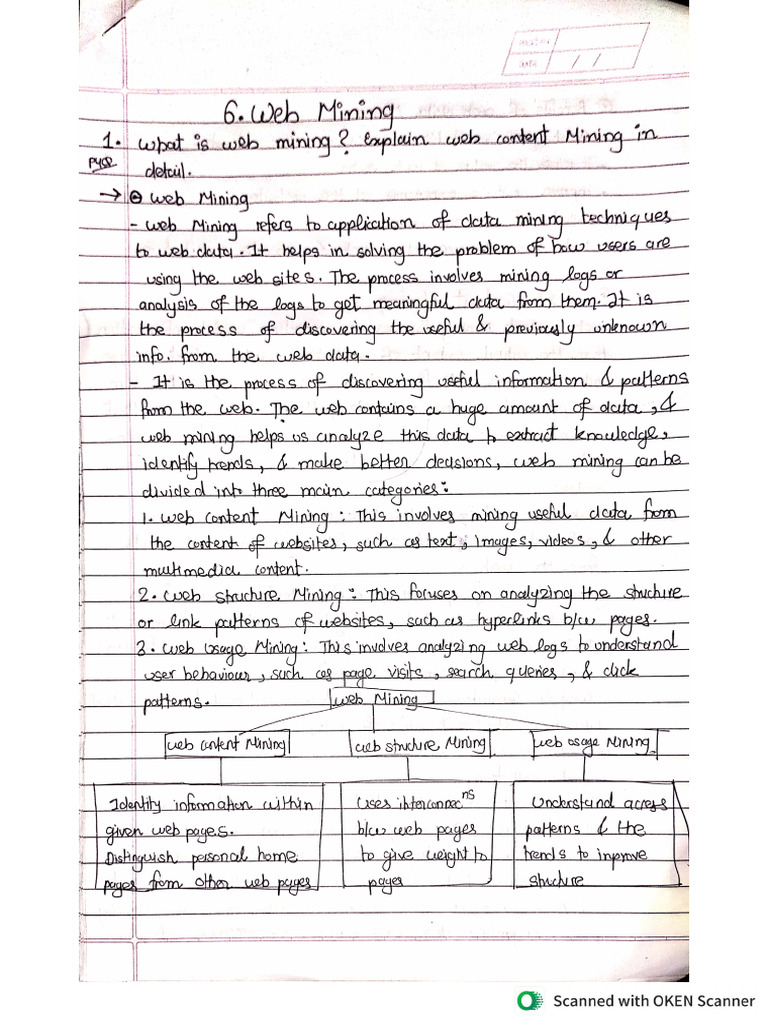 DATE / /
6. Web Mining
1. What is web mining? Explain web content Mining in
PYQ
detail.
→ ⊖ Web Mining
- Web Mining refers to application of data mining techniques
to web data. It helps in solving the problem of how users are
using the web sites. The process involves mining logs or
analysis of the logs to get meaningful data from them. It is
the process of discovering the useful & previously unknown
info. from the web data.
- It is the process of discovering useful information & patterns
from the web. The web contains a huge amount of data, &
web mining helps us analyze this data to extract knowledge,
identify trends, & make better decisions, web mining can be
divided into three main categories:
1. Web content Mining : This involves mining useful data from
the content of websites, such as text, images, videos, & other
multimedia content.
2. Web structure Mining : This focuses on analyzing the structure
or link patterns of websites, such as hyperlinks b/w pages.
3. Web Usage Mining : This involves analyzing web logs to understand
user behaviour, such as page visits, search queries, & click
patterns.
Web Mining
Web Content Mining
Web structure Mining
Web Usage Mining
Identity information within
given web pages.
Distinguish personal home
pages from other web pages
Uses interconnecns
b/w web pages
to give weight to
pages
Understand access
patterns & the
trends to improve
structure
Scanned with OKEN Scanner